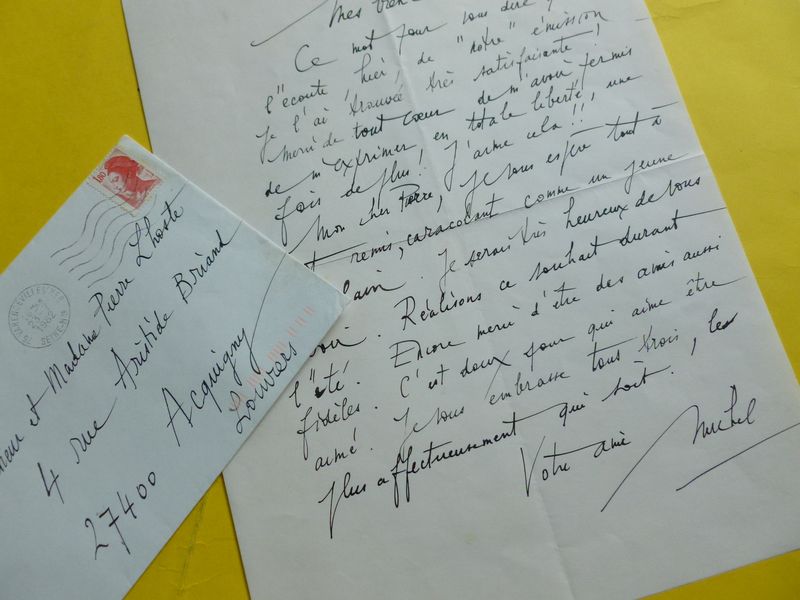 Mes
Ce mot pour vous dire
l'écoute, hier, de "notre" émission
je l'ai trouvée très satisfaisante !
merci de tout cœur de m'avoir permis
de m'exprimer en totale liberté, une
fois de plus ! J'aime cela !!
Mon cher Pierre, je vous espère tout à
remis, caracolant comme un jeune
lain. Je serais très heureux de vous
voir. Réalisons ce souhait durant
l'été. Encore merci d'être des amis aussi
fidèles. C'est doux pour qui aime être
aimé. Je vous embrasse tous trois, les
plus affectueusement qui soit.
Votre ami Michel
1,80
1982
et Madame Pierre Lhoste
4 rue Aristide Briand
27400 Acquigny
Louviers